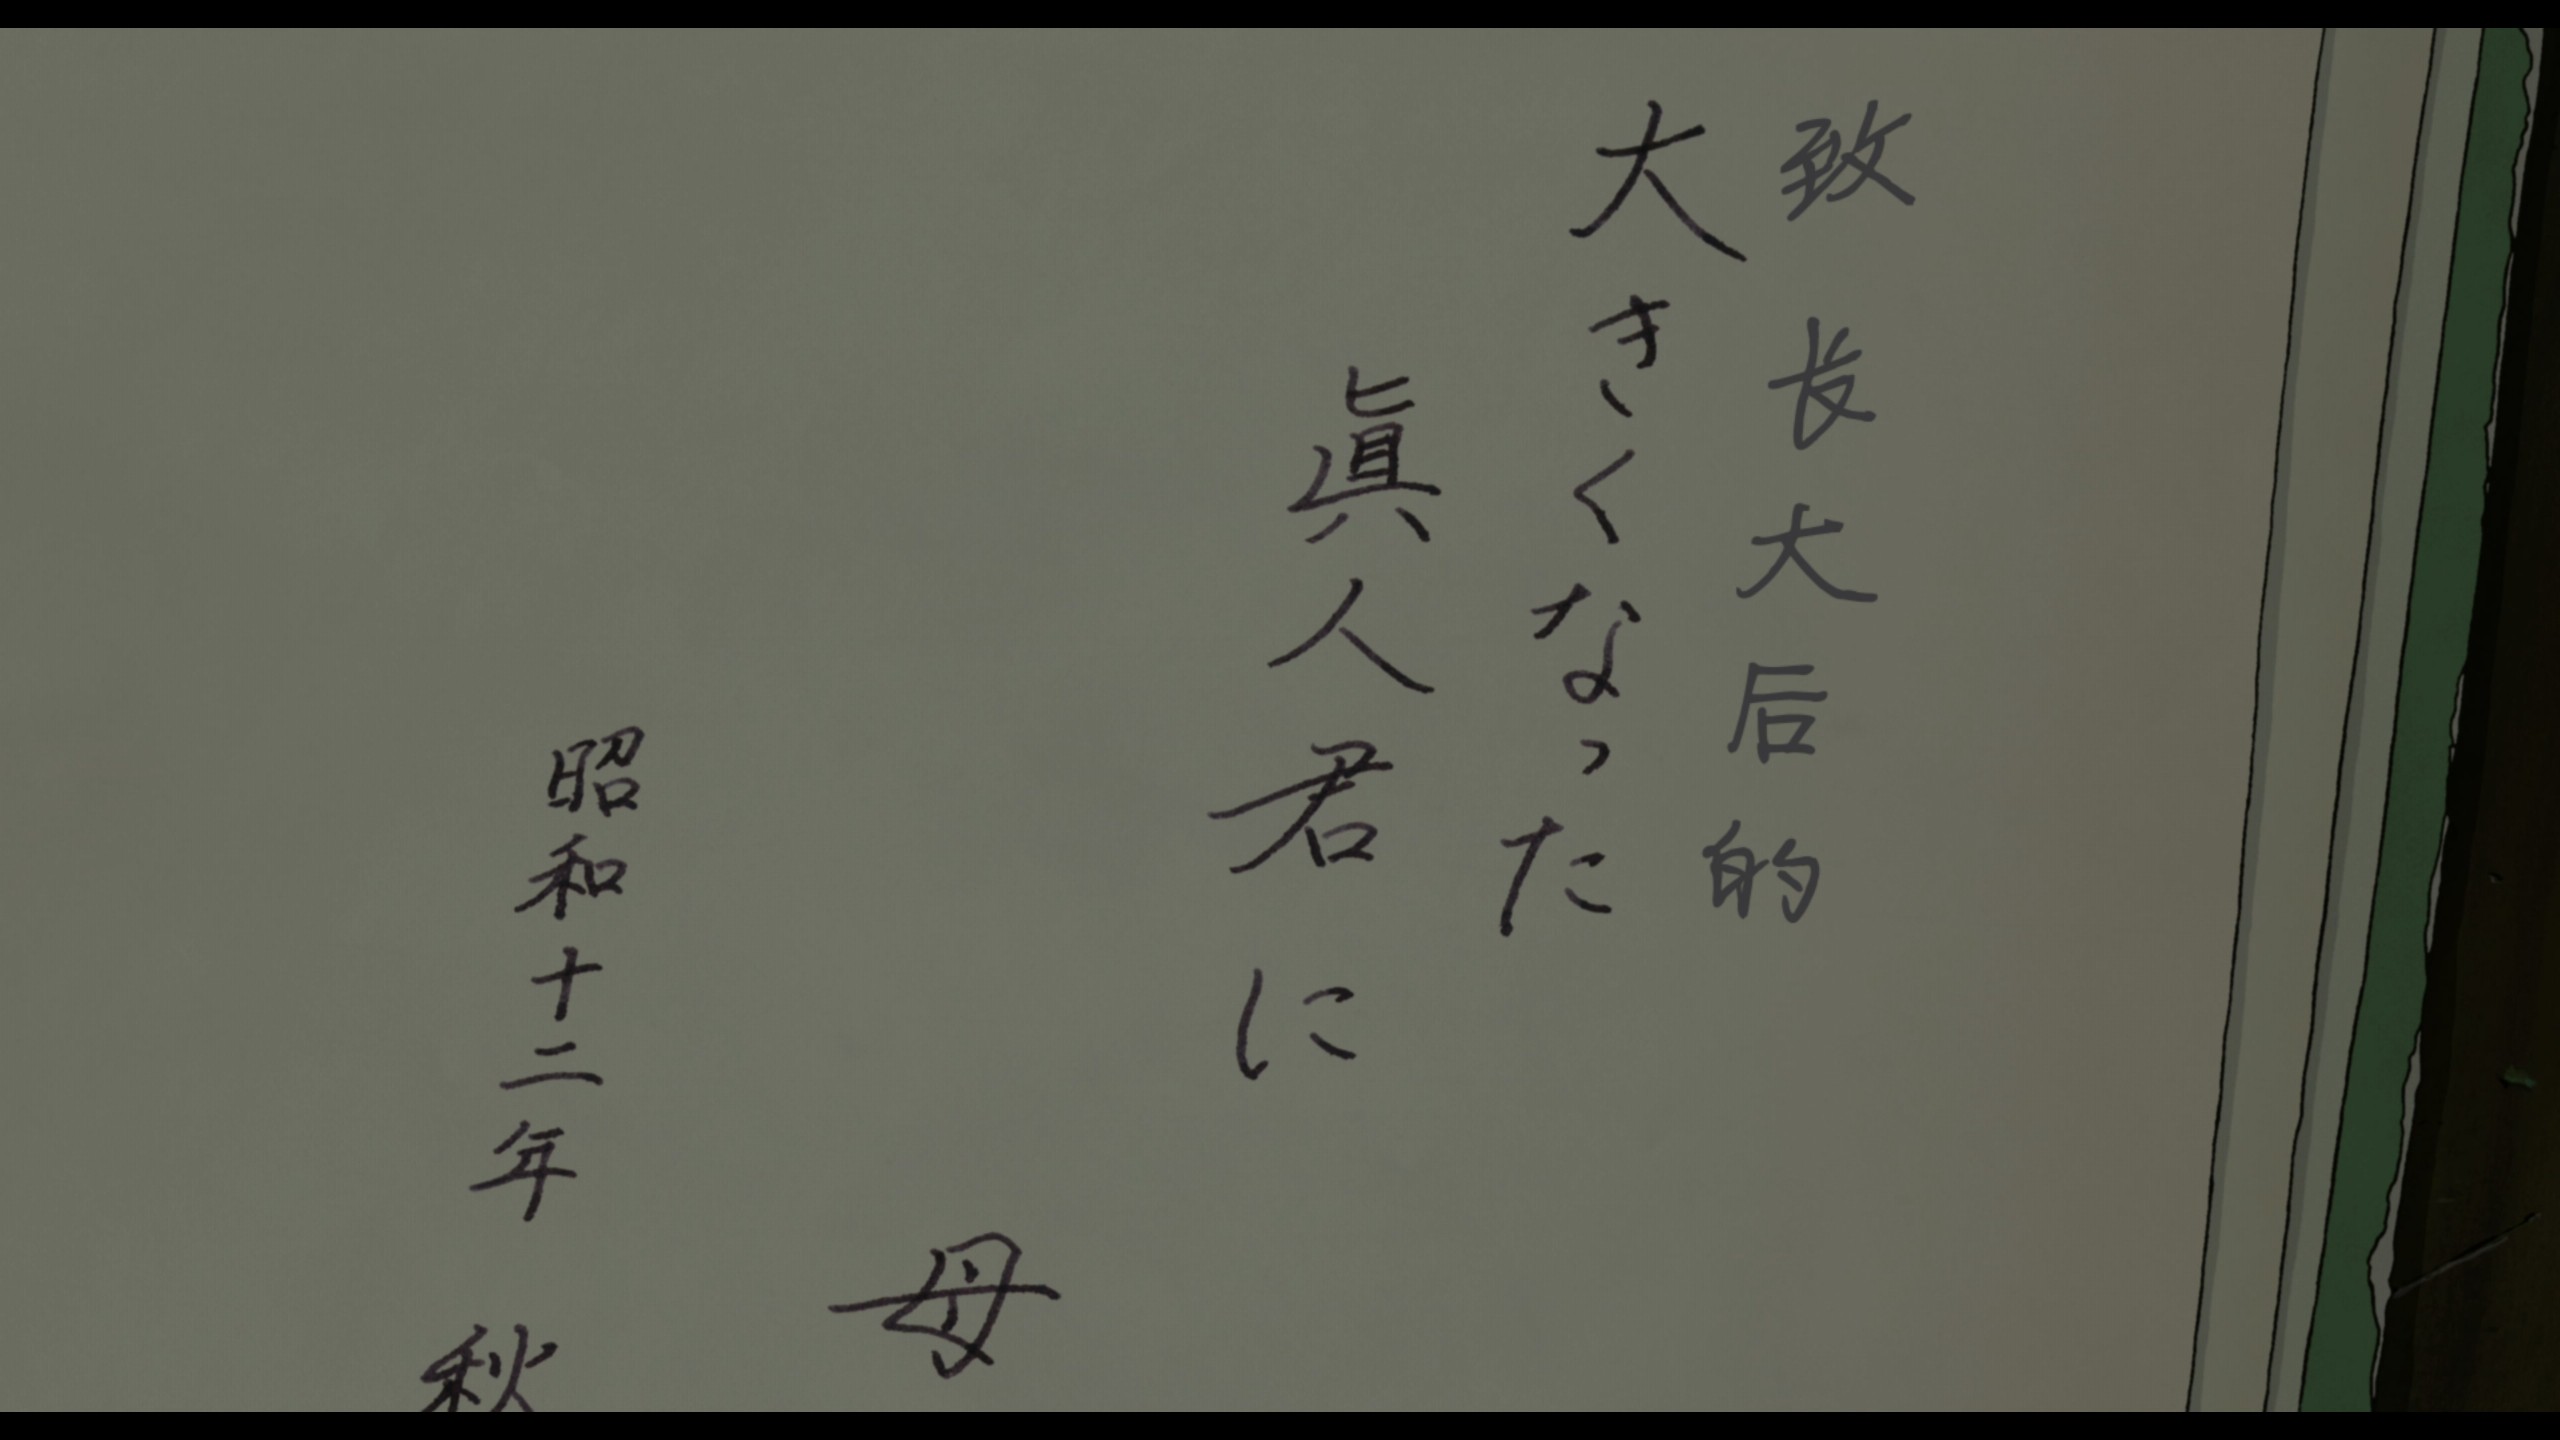 致长大后的
大きくなった
眞人君に
母
昭和十二年 秋